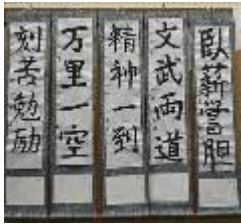 臥薪嘗胆
文武両道
精神一到
万里一空
刻苦勉励